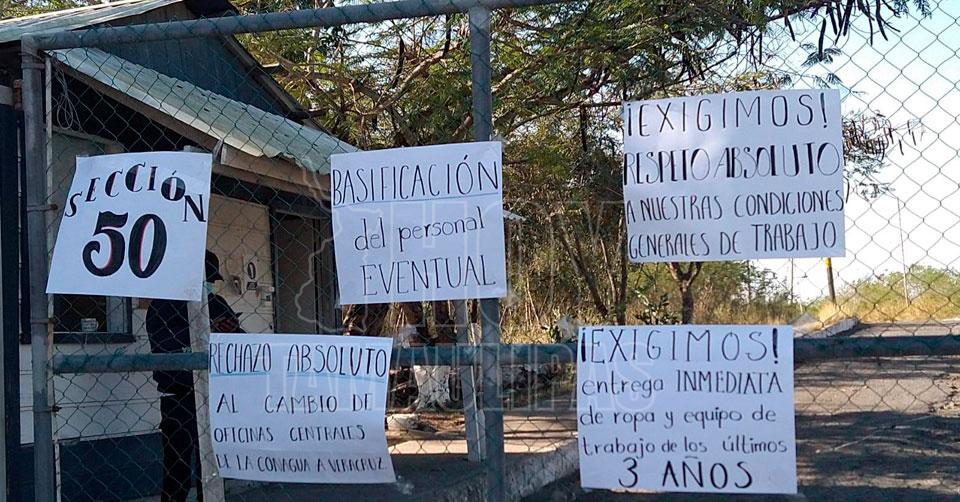 SECCIÓN
50
BASIFICACIÓN
del personal
EVENTUAL
¡EXIGIMOS!
RESPETO ABSOLUTO
A NUESTRAS CONDICIONES
GENERALES DE TRABAJO
RECHAZO ABSOLUTO
AL CAMBIO DE
OFICINAS CENTRALES
DE LA CONAGUA A VERACRUZ
¡EXIGIMOS!
entrega INMEDIATA
de ropa y equipo de
trabajo de los últimos
3 AÑOS
TAMAULIPAS